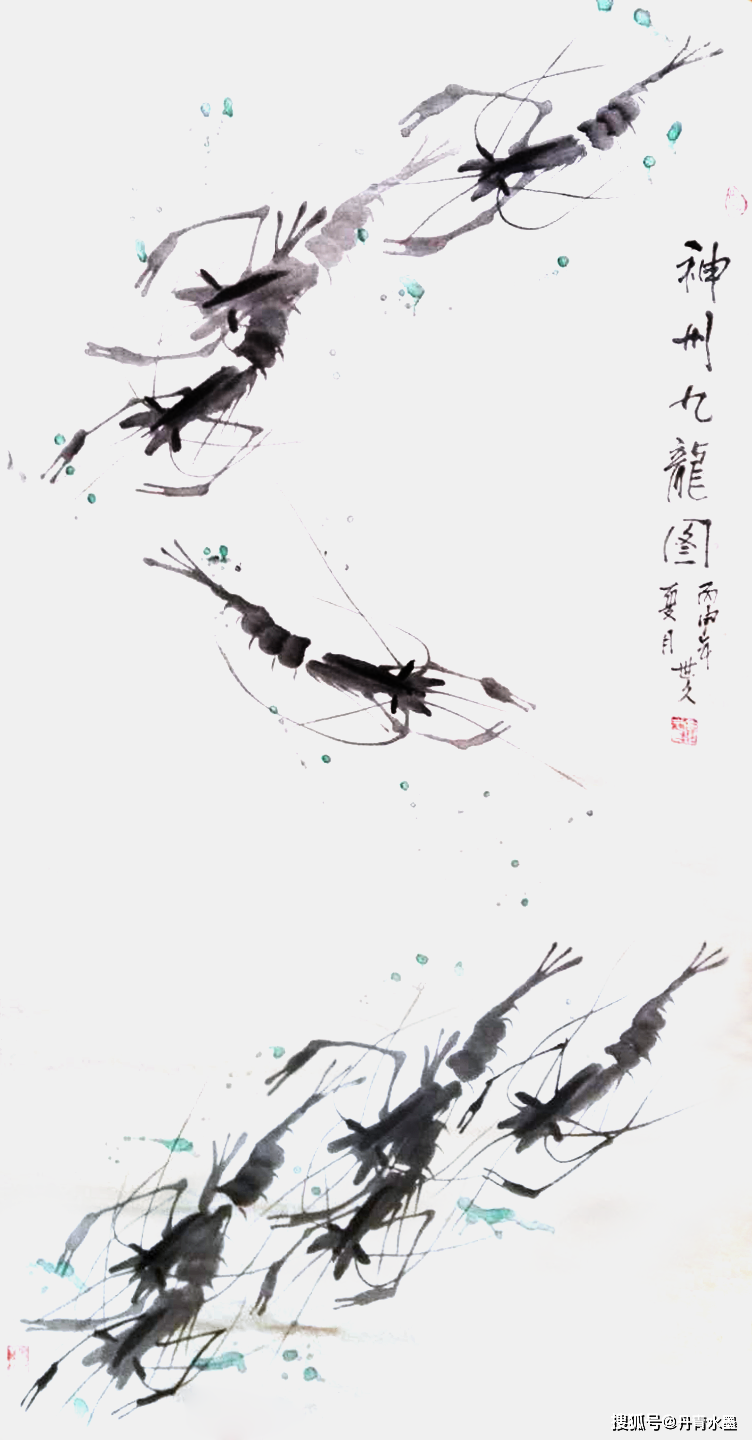 神州九龍图
丙申年
夏月
搜狐号@丹青水墨